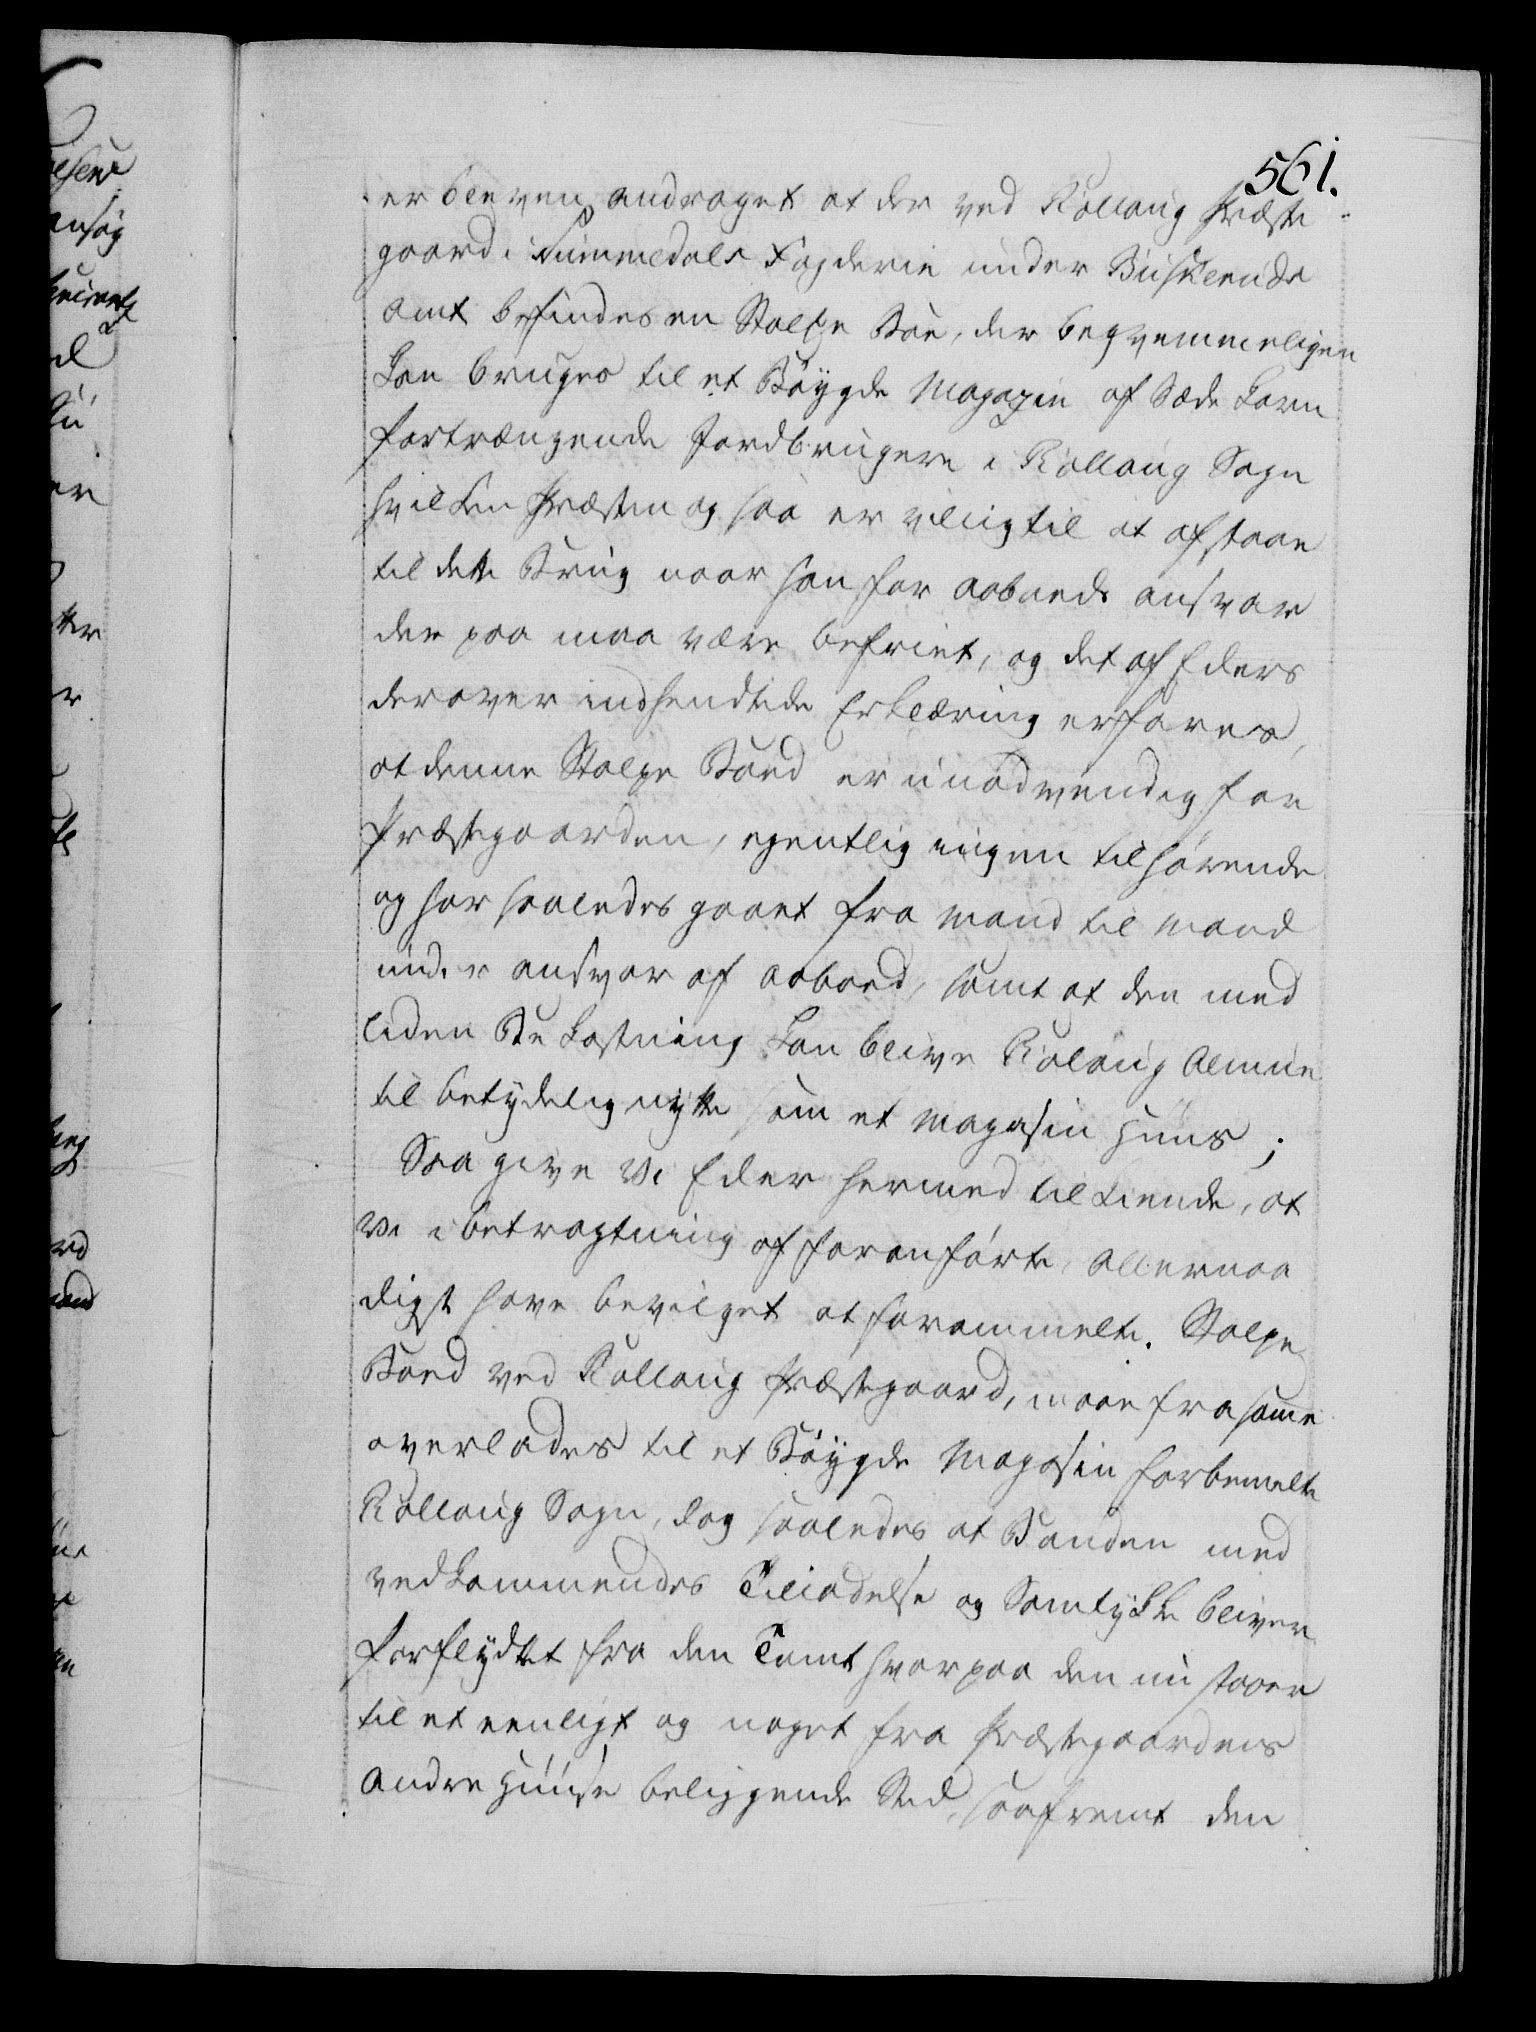 561.
er bleven andraget at der ved Rollaug Præste
gaard i Nummedals Fogderie under Buskeruds
Amt befindes en Stolpe Boe, der beqvemmeligen
kan bruges til et Bøygde Magazin af Sæde Korn
for trængende Jordbrugere i Rollaug Sogn
hvilken Præsten og saa er villig til at afstaae
til dette Brug naar han for Aaboeds ansvar
der paa maa være befriet, og det af Eders
derover indsendtede Erklæring erfares,
at denne Stolpe Boed er unødvendig for
Præstegaarden, egentlig ingen tilhørende
og har saaledes gaaet fra Mand til Mand
under ansvar af Aaboed, samt at den med
liden Bekostning kan blive Rolaug Almue
til betydelig nytte som et Magasin Huus;
Saa give Vi Eder hermed tilkiende, at
Vi i betragtning af foranførte, Allernaa
digst have bevilget at forommelte. Stolpe
Boed ved Rollaug Præstegaard, maae fra samme
overlades til et Bøygde Magasin for bemelte
Rollaug Sogn, dog saaledes at Boeden med
vedkommendes Tilladelse og Samtykke bliver
forflydtet fra den Tomt hvorpaa den nu staaer
til et eenligt og noget fra Præstegaardens
andre Huuse beliggende Sted, saafremt den